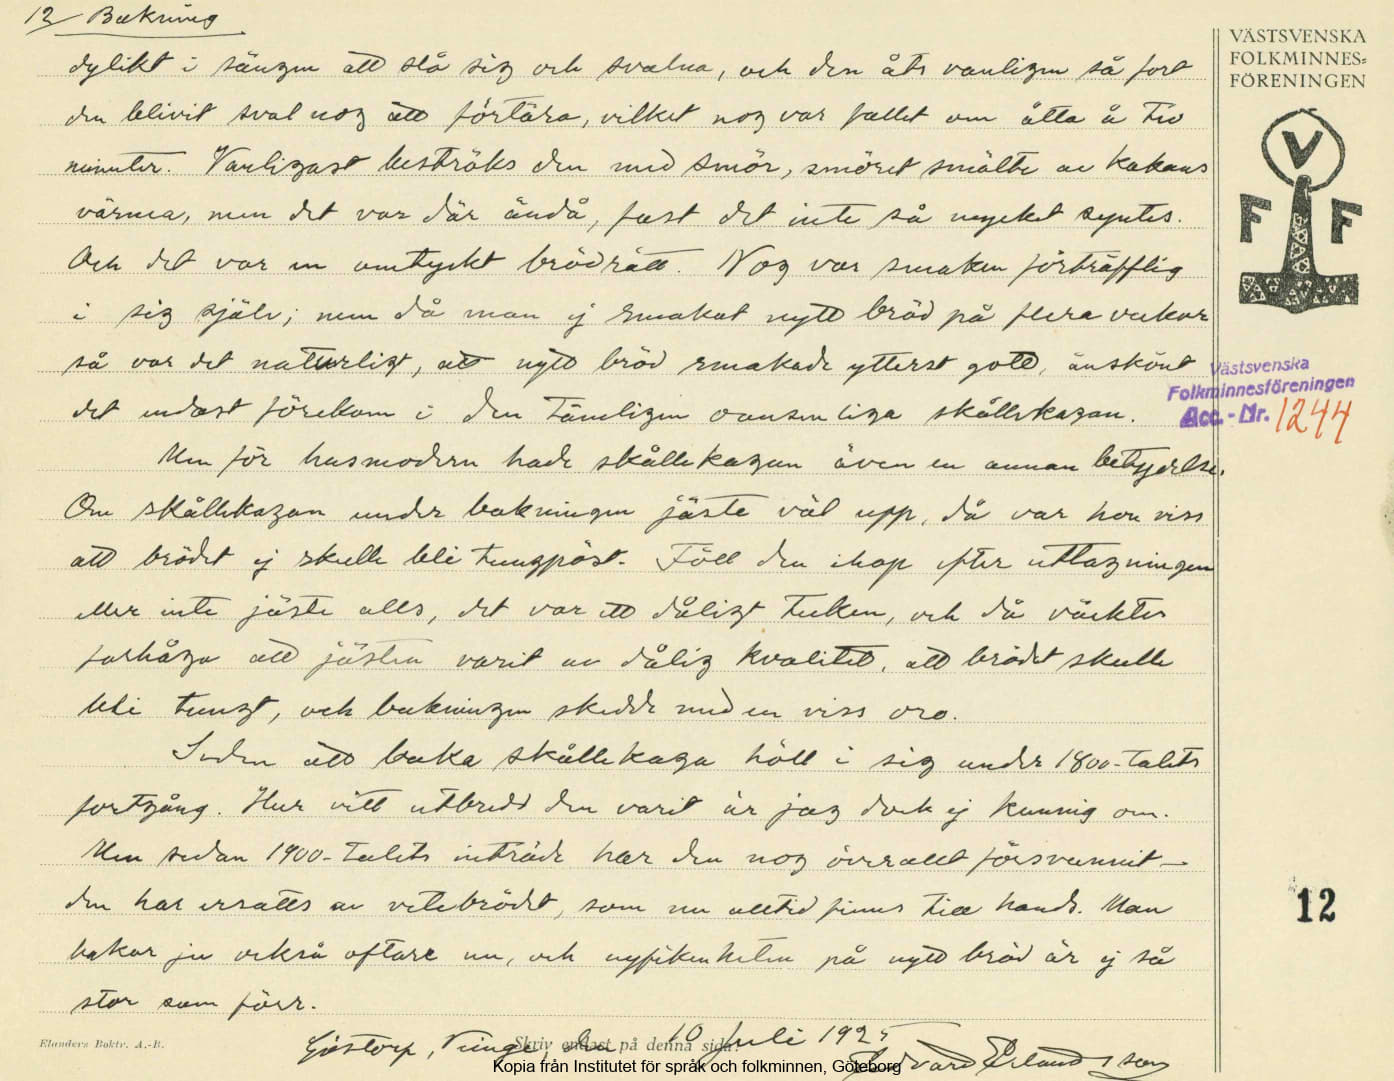 12 Bakning
dylikt i sängen att slå sig och svalna, och den åts vanligen så fort
den blivit sval nog att förtära, vilket nog var fallet om åtta å tio
minuter. Vanligast beströks den med smör, smöret smälte av kakans
värma, men det var där ändå, fast det inte så mycket syntes.
Och det var en omtyckt brödrätt. Nog var smaken förträfflig
i sig själv; men då man ej smakat nytt bröd på flera veckor
så var det naturligt, att nytt bröd smakade ytterst gott, änskönt
det endast förekom i den tämligen oansenliga skållekagan.
Men för husmodern hade skållekagan även en annan betydelse.
Om skållekagan under bakningen jäste väl upp, då var hon viss
att brödet ej skulle bli tungpöst. Föll den ihop efter uttagningen
eller inte jäste alls, det var ett dåligt tecken, och då väcktes
farhåga att jästen varit av dålig kvalitet, att brödet skulle
bli tungt, och bakningen skedde med en viss oro.
Seden att baka skållekaga höll i sig under 1800-talets
fortgång. Hur vitt utbredd den varit är jag dock ej kunnig om.
Men sedan 1900-talets inträde har den nog överallt försvunnit —
den har ersatts av vetebrödet, som nu alltid finns till hands. Man
bakar ju också oftare nu, och nyfikenheten på nytt bröd är ej så
stor som förr.
Göstorp, Tvinge, den 10 Juli 192
Edvard Erlandsson
Elanders Boktr. A.-B.
Skriv endast på denna sida!
Kopia från Institutet för språk och folkminnen, Göteborg
VÄSTSVENSKA
FOLKMINNES=
FÖRENINGEN
V
F F
Västsvenska
Folkminnesföreningen
Acc.-Nr. 1244
12